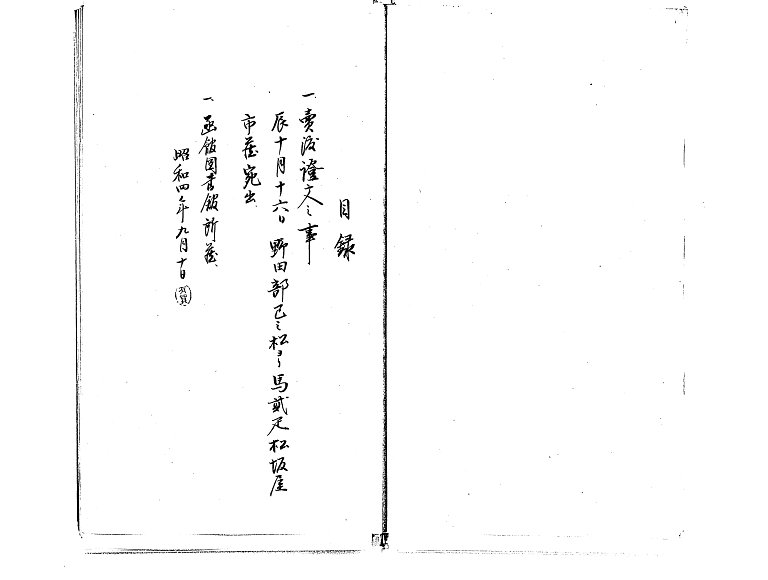 目録
一、賣渡證文之事
辰十月十六日 野田部巳之松ヨリ馬貳疋松坂屋
市蔵宛出
一、函館図書館所蔵、
昭和四年九月十日